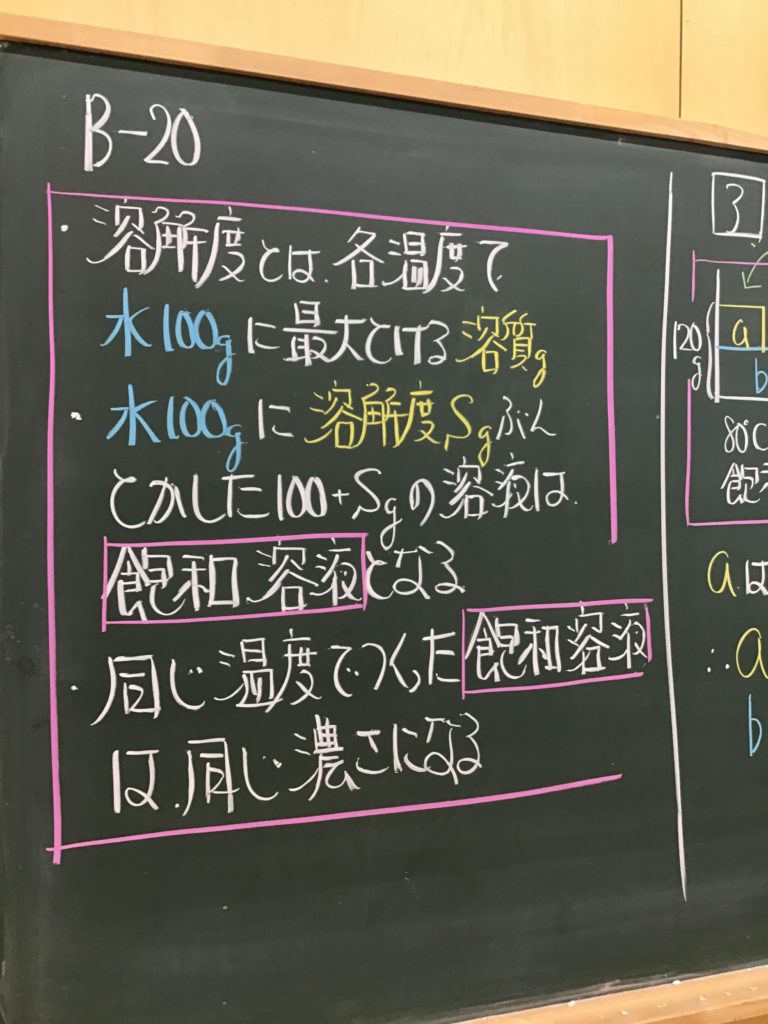 B-20
・溶解度とは、各温度で
水100gに最大とける溶質g
・水100gに溶解度Sgぶん
とかした100+Sgの溶液は、
飽和溶液となる
・同じ温度でつくった飽和溶液
は、同じ濃さになる
3
120g
a
b
80℃
飽和
aは
∴a
b